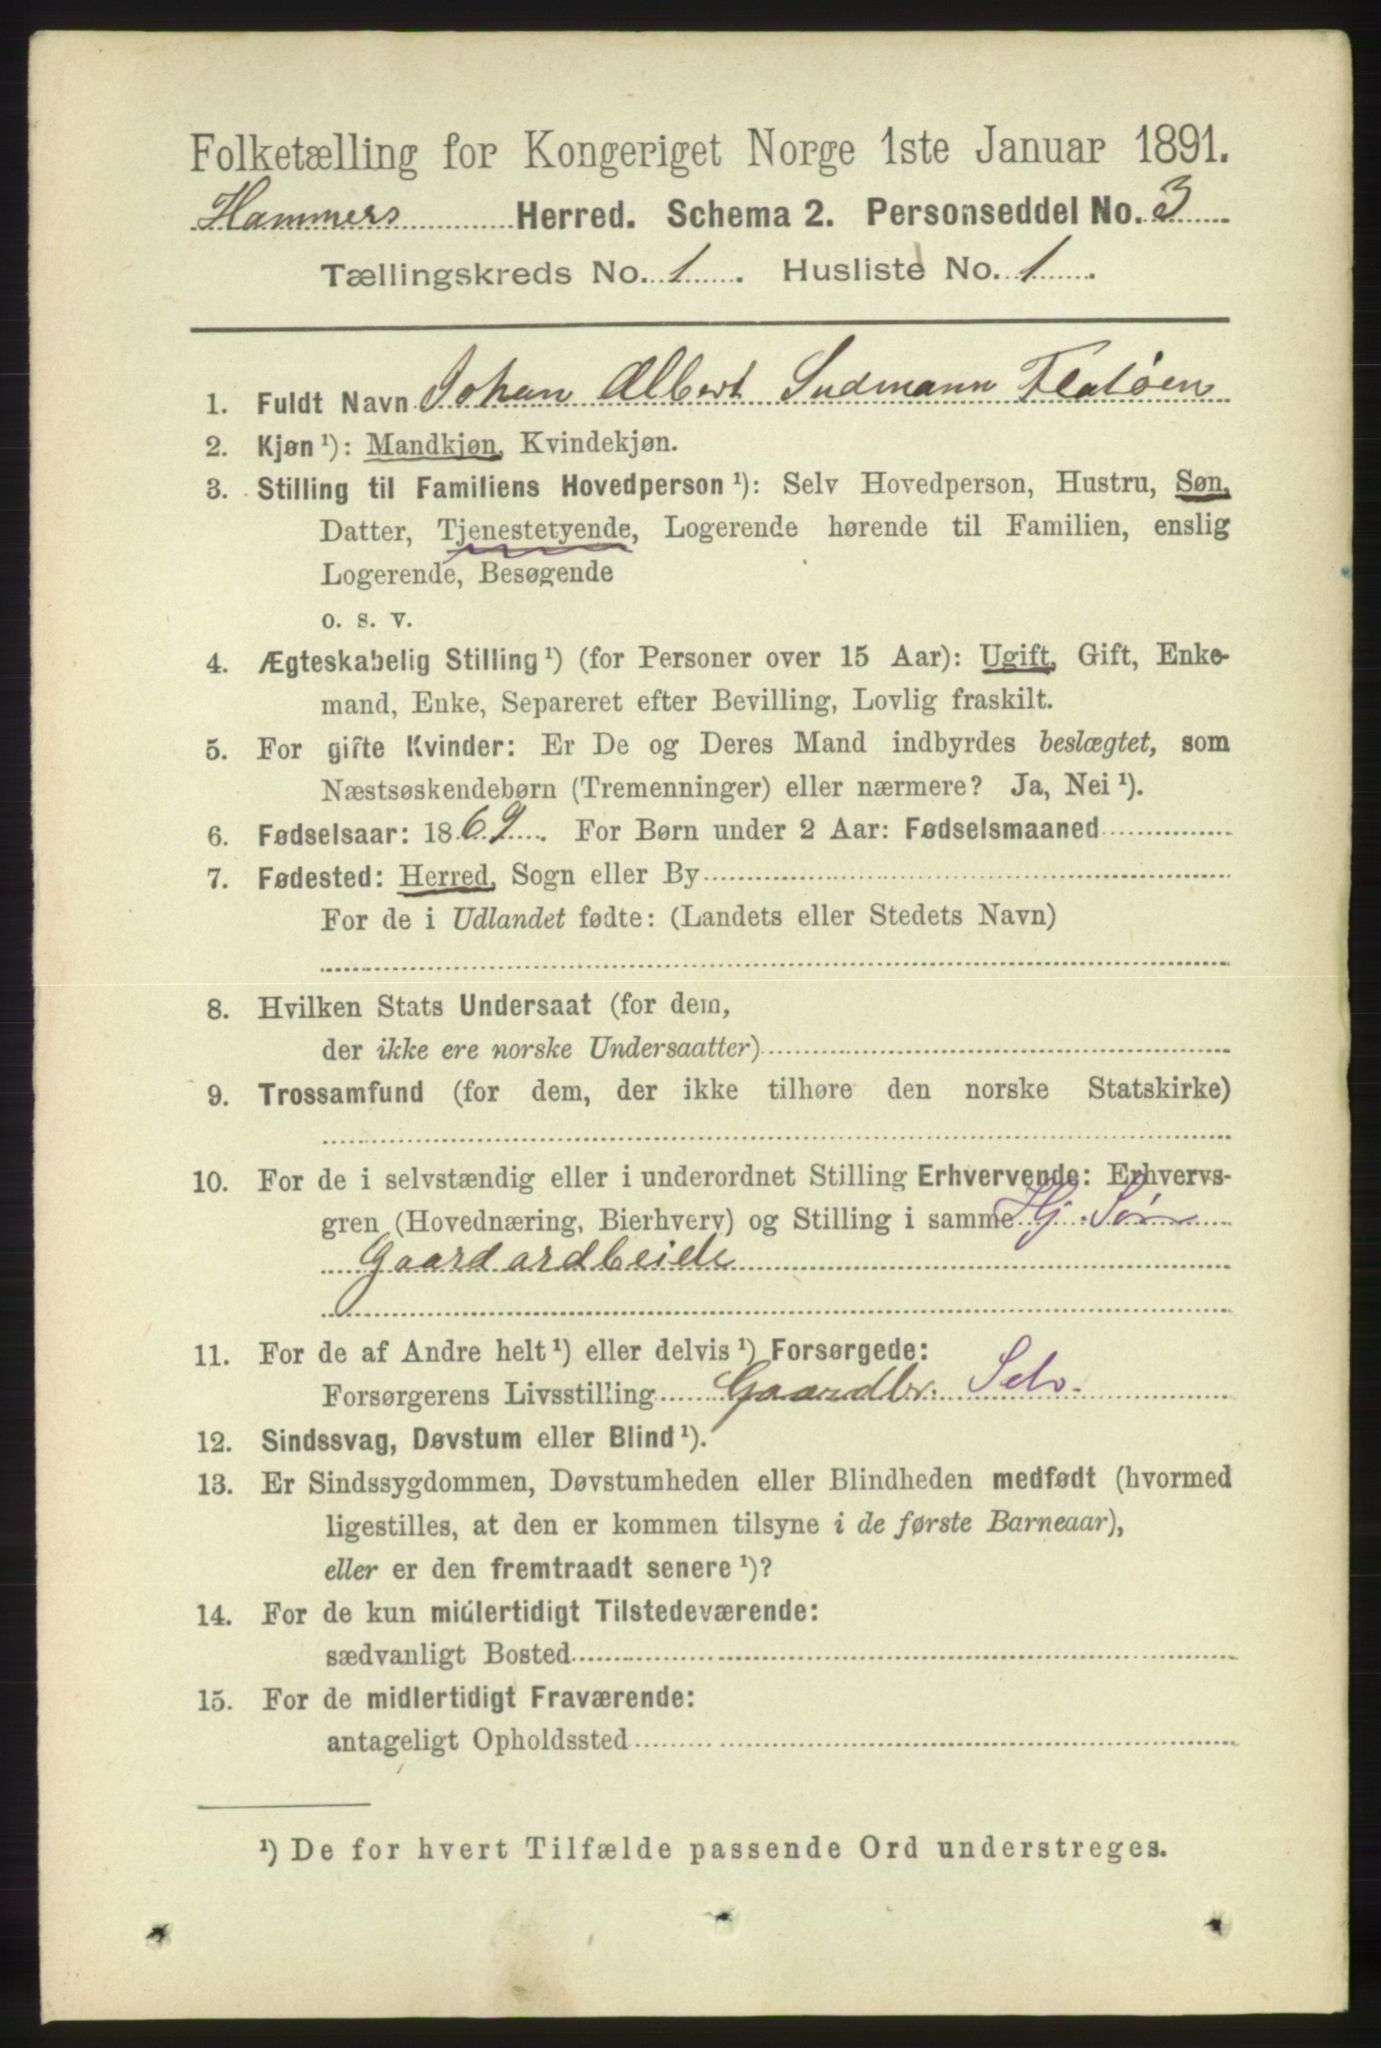 Folketælling for Kongeriget Norge 1ste Januar 1891.
Hammers Herred. Schema 2. Personseddel No. 3
Tællingskreds No. 1. Husliste No. 1.
1. Fuldt Navn Johan Albert Sudmann Flatøen
2. Kjøn ¹): Mandkjøn, Kvindekjøn.
3. Stilling til Familiens Hovedperson ¹): Selv Hovedperson, Hustru, Søn,
Datter, Tjenestetyende, Logerende hørende til Familien, enslig
Logerende, Besøgende
o. s. v.
4. Ægteskabelig Stilling ¹) (for Personer over 15 Aar): Ugift, Gift, Enke-
mand, Enke, Separeret efter Bevilling, Lovlig fraskilt.
5. For gifte Kvinder: Er De og Deres Mand indbyrdes beslægtet, som
Næstsøskendebørn (Tremenninger) eller nærmere? Ja, Nei ¹).
6. Fødselsaar: 1869. For Børn under 2 Aar: Fødselsmaaned
7. Fødested: Herred, Sogn eller By
For de i Udlandet fødte: (Landets eller Stedets Navn)
8. Hvilken Stats Undersaat (for dem,
der ikke ere norske Undersaatter)
9. Trossamfund (for dem, der ikke tilhøre den norske Statskirke)
10. For de i selvstændig eller i underordnet Stilling Erhvervende: Erhvervs-
gren (Hovednæring, Bierhverv) og Stilling i samme Hj. Søn
Gaardardbeide
11. For de af Andre helt ¹) eller delvis ¹) Forsørgede:
Forsørgerens Livsstilling Gaardbr. Selv.
12. Sindssvag, Døvstum eller Blind ¹).
13. Er Sindssygdommen, Døvstumheden eller Blindheden medfødt (hvormed
ligestilles, at den er kommen tilsyne i de første Barneaar),
eller er den fremtraadt senere ¹)?
14. For de kun midlertidigt Tilstedeværende:
sædvanligt Bosted
15. For de midlertidigt Fraværende:
antageligt Opholdssted
¹) De for hvert Tilfælde passende Ord understreges.